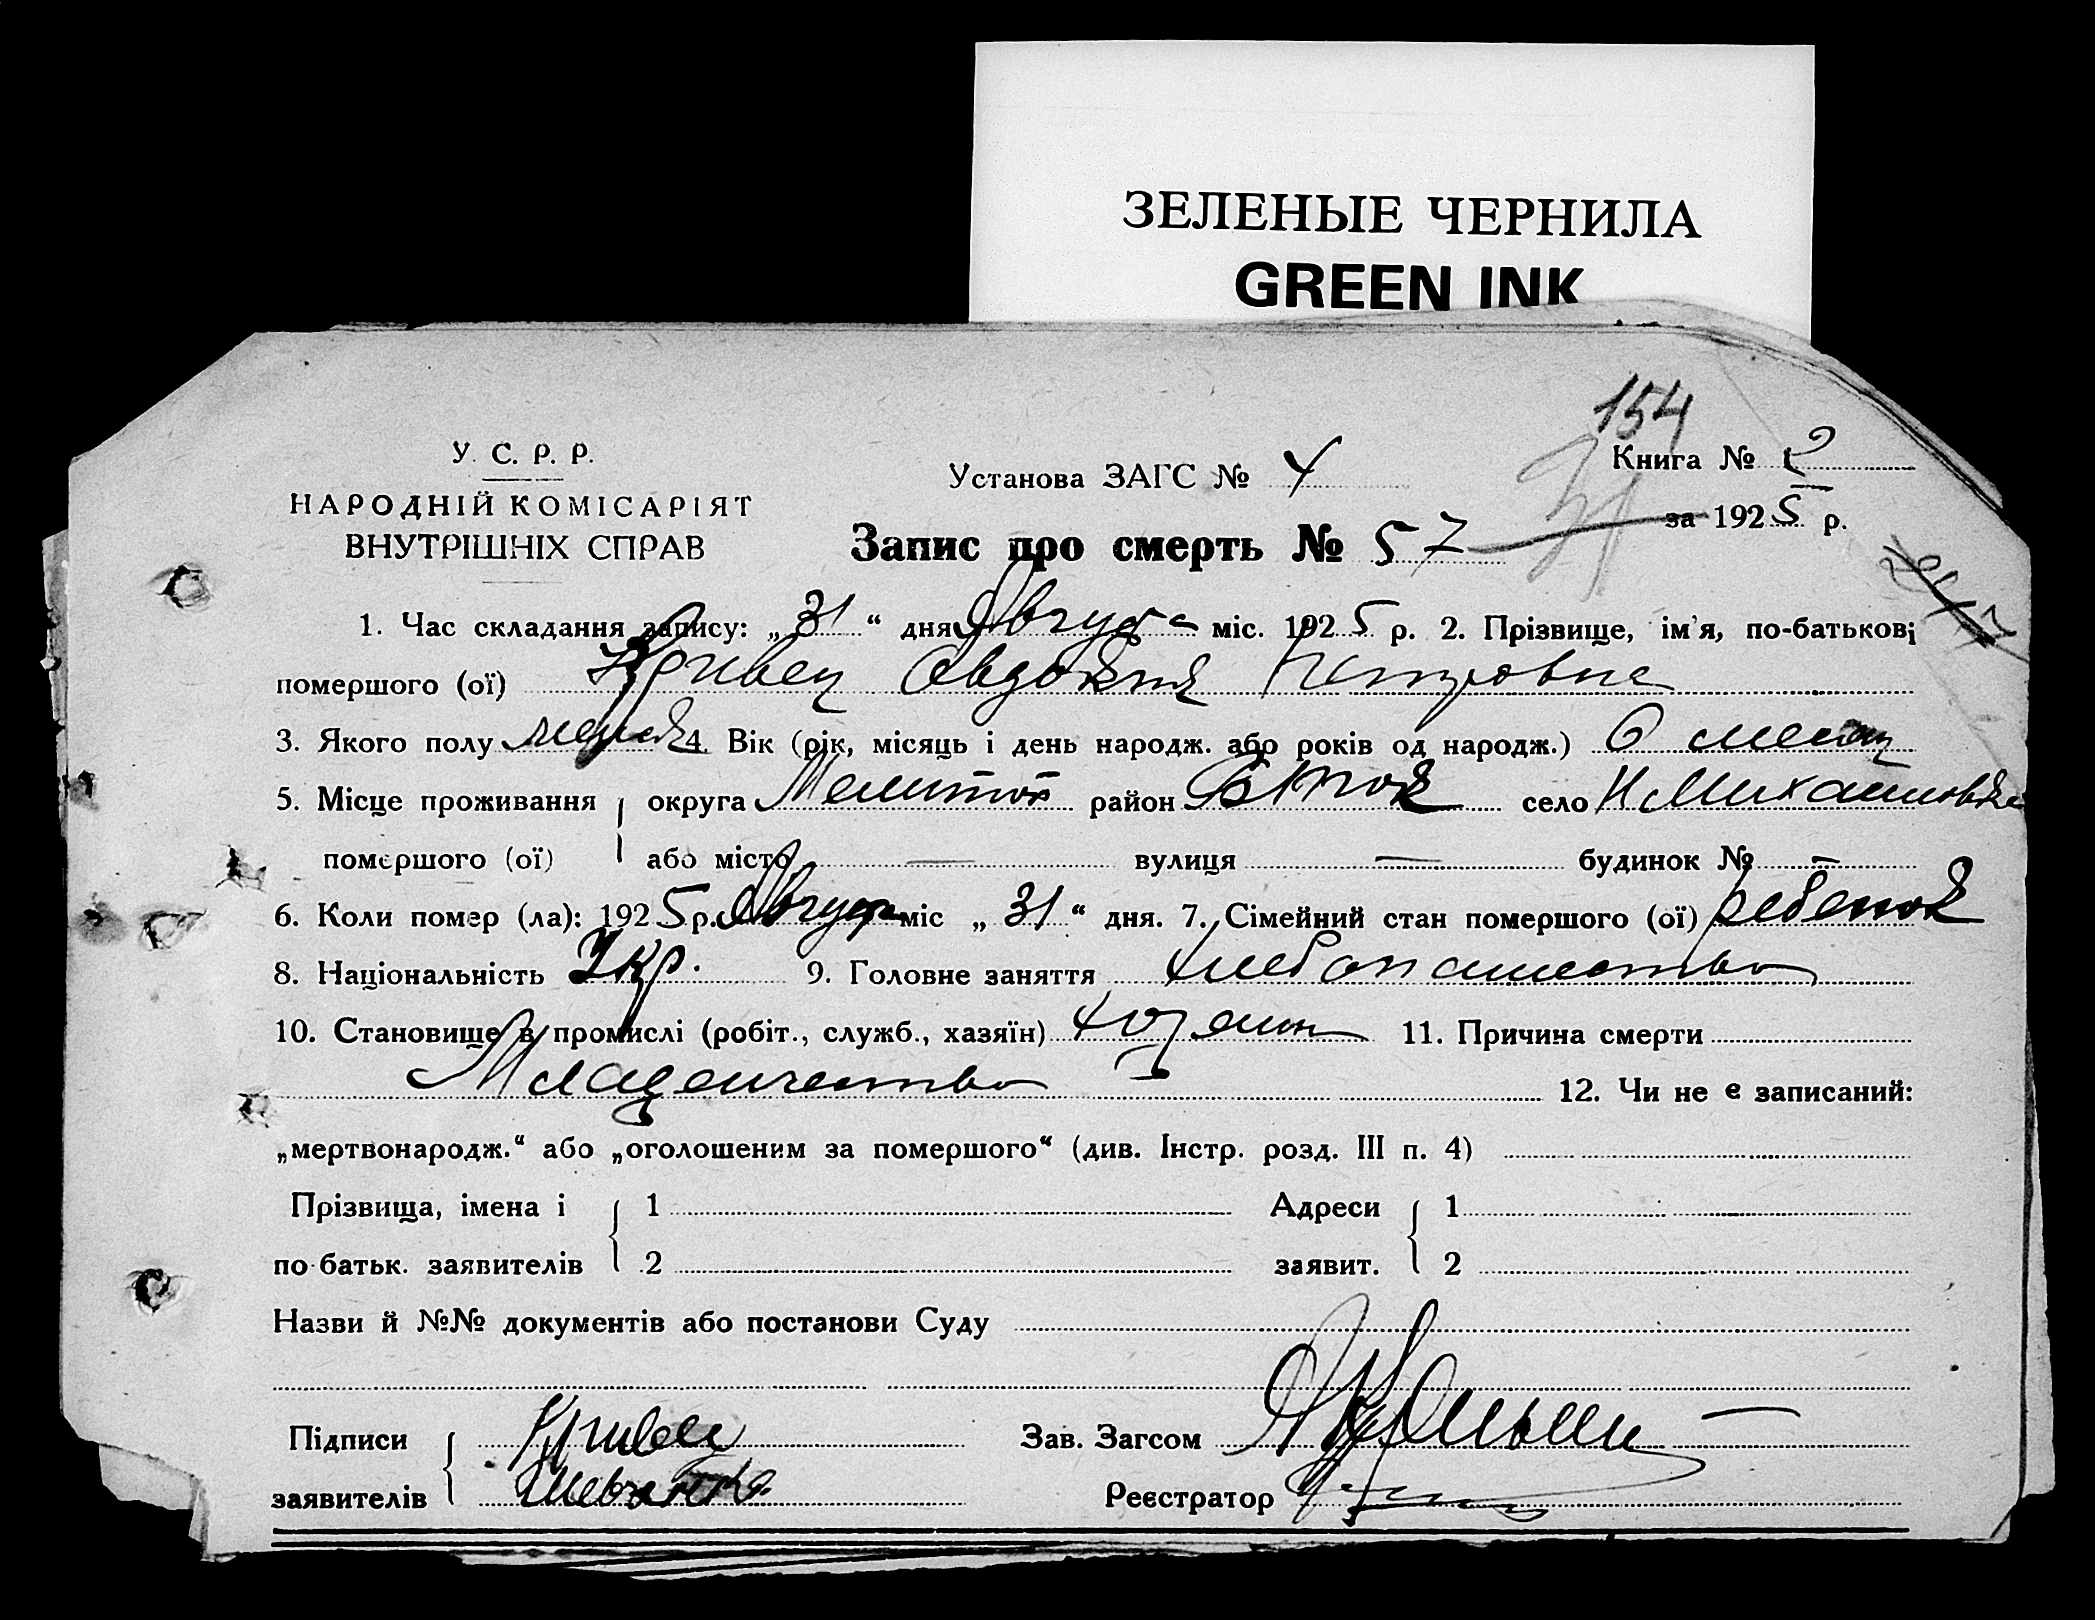 ЗЕЛЕНЫЕ ЧЕРНИЛА
GREEN INK
154
У. С. Р. Р.
НАРОДНІЙ КОМІСАРІЯТ
ВНУТРІШНІХ СПРАВ
Установа ЗАГС № 4
Книга № 2
за 1925 р.
Запис про смерть № 57
1. Час складання запису: „31“ дня Августа міс. 1925 р. 2. Прізвище, ім'я, по-батькові
помершого (ої) Кривец Овдокия Петровна
3. Якого полу 4. Вік (рік, місяць і день народж. або років од народж.) 6 месяц
5. Місце проживання округа Мелитоп район село Н Михайловка
помершого (ої) або місто — вулиця — будинок № —
6. Коли помер (ла): 1925 р. Августа міс „31“ дня. 7. Сімейний стан помершого (ої) ребенок
8. Національність Укр. 9. Головне заняття хлебопашество
10. Становище в промислі (робіт., служб., хазяїн) хозяин 11. Причина смерти
Младенчество 12. Чи не є записаний:
„мертвонародж.“ або „оголошеним за помершого“ (див. Інстр. розд. III п. 4)
Прізвища, імена і 1 Адреси 1
по-батьк. заявителів 2 заявит. 2
Назви й №№ документів або постанови Суду
Підписи Кривец Зав. Загсом
заявителів Шевченко Реєстратор